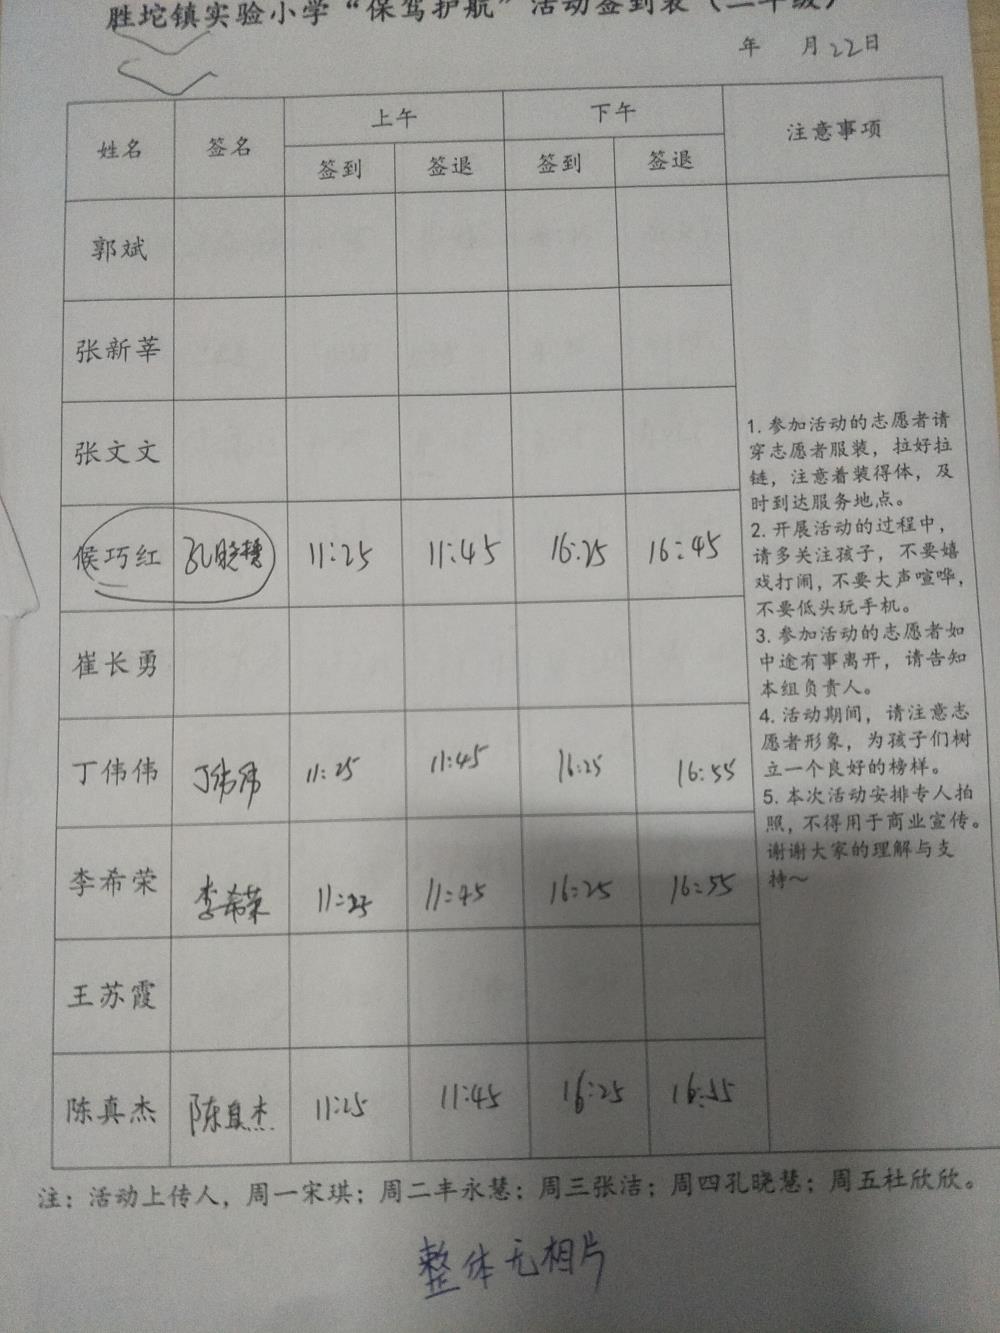 胜坨镇实验小学“保驾护航”活动签到表（二年级）
年 月22日
姓名 签名 上午 下午 注意事项
签到 签退 签到 签退
郭斌
张新莘
张文文
侯巧红 孔晓慧 11:25 11:45 16:25 16:45
崔长勇
丁伟伟 丁伟伟 11:25 11:45 16:25 16:55
李希荣 李希荣 11:25 11:45 16:25 16:55
王苏霞
陈真杰 陈真杰 11:25 11:45 16:25 16:55
1. 参加活动的志愿者请
穿志愿者服装，拉好拉
链，注意着装得体，及
时到达服务地点。
2. 开展活动的过程中，
请多关注孩子，不要嬉
戏打闹，不要大声喧哗，
不要低头玩手机。
3. 参加活动的志愿者如
中途有事离开，请告知
本组负责人。
4. 活动期间，请注意志
愿者形象，为孩子们树
立一个良好的榜样。
5. 本次活动安排专人拍
照，不得用于商业宣传。
谢谢大家的理解与支
持～
注：活动上传人，周一宋琪；周二丰永慧；周三张洁；周四孔晓慧；周五杜欣欣。
整体无相片